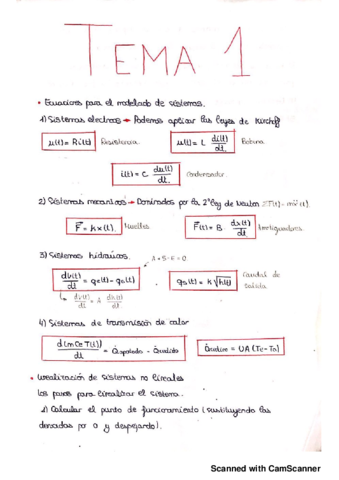 TEMA 1
• Ecuaciones para el modelado de sistemas.
1) Sistemas electricos → Podemos aplicar las leyes de Kirchoff
u(t) = Ri(t) Resistencia. u(t) = L di(t)/dt. Bobina.
i(t) = C du(t)/dt. Condensador.
2) Sistemas mecanicos → Dominados por la 2ª ley de Newton
F = kx(t). Muelles F(t) = B dx(t)/dt Amortiguadores.
3) Sistemas hidraulicos.
dv(t)/dt = qe(t) - qs(t) qs(t) = k√h(t) Caudal de salida
dv(t)/dt = A dh(t)/dt
4) Sistemas de transmision de calor
d(m Ce T(t))/dt = Qaportado - Qcedido Qcedido = UA(Tc-Tn)
• Linealización de sistemas no lineales
Los pasos para linealizar el sistema.
1) Calcular el punto de funcionamiento (sustituyendo las
derivadas por 0 y despejando).
Scanned with CamScanner